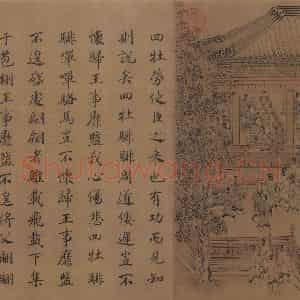 四牡勞使臣之来也有功而見知
則說矣四牡騑騑周道倭遲豈不
懷歸王事靡盬我心傷悲四牡騑
騑嘽嘽駱馬豈不懷歸王事靡盬
不遑啓處翩翩者鵻載飛載下集
于苞栩王事靡盬不遑將父翩翩
Shufawang.CN